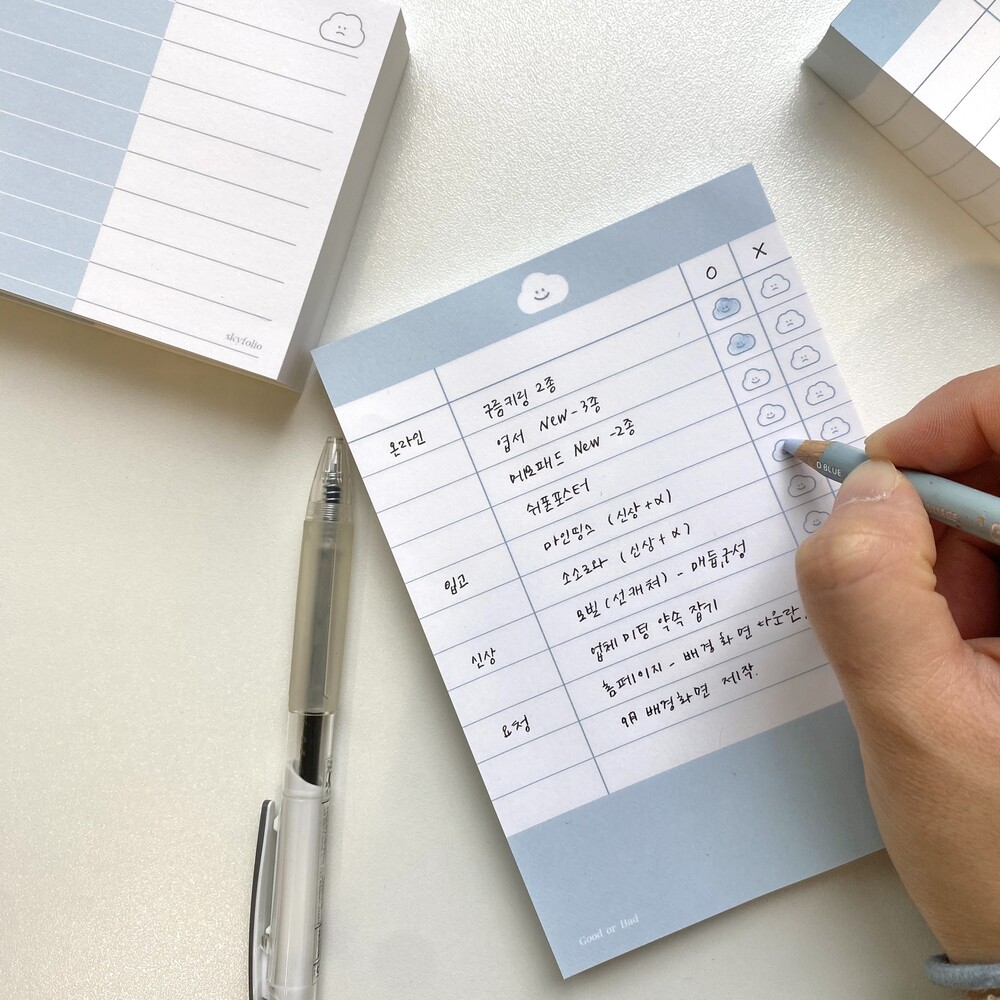 skyfolio
O X
온라인 구름키링 2종
엽서 New - 3종
메모패드 New - 2종
쉬폰포스터
입고 마인띵스 (신상 + α)
소소로와 (신상 + α)
모빌 (선캐쳐) - 매듭, 구성
신상 업체 미팅 약속 잡기
홈페이지 - 배경화면 다운란.
요청 9月 배경화면 제작.
Good or Bad
O BLUE